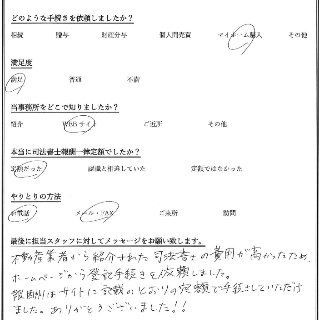 どのような手続きを依頼しましたか?
相続 贈与 財産分与 個人間売買 マイホーム購入 その他
満足度
満足 普通 不満
当事務所をどこで知りましたか?
紹介 WEBサイト ご近所 その他
本当に司法書士報酬一律定額でしたか?
定額だった 誤魔と相違していた 定額ではなかった
やりとりの方法
お電話 メール・FAX ご来所 訪問
最後に担当スタッフに対してメッセージをお願い致します。
不動産業者から紹介された司法書士の費用が高かったため、
ホームページから登記手続きを依頼しました。
報酬はサイトに記載のとおりの定額で手続きしていただけ
ました。ありがとうございました!!